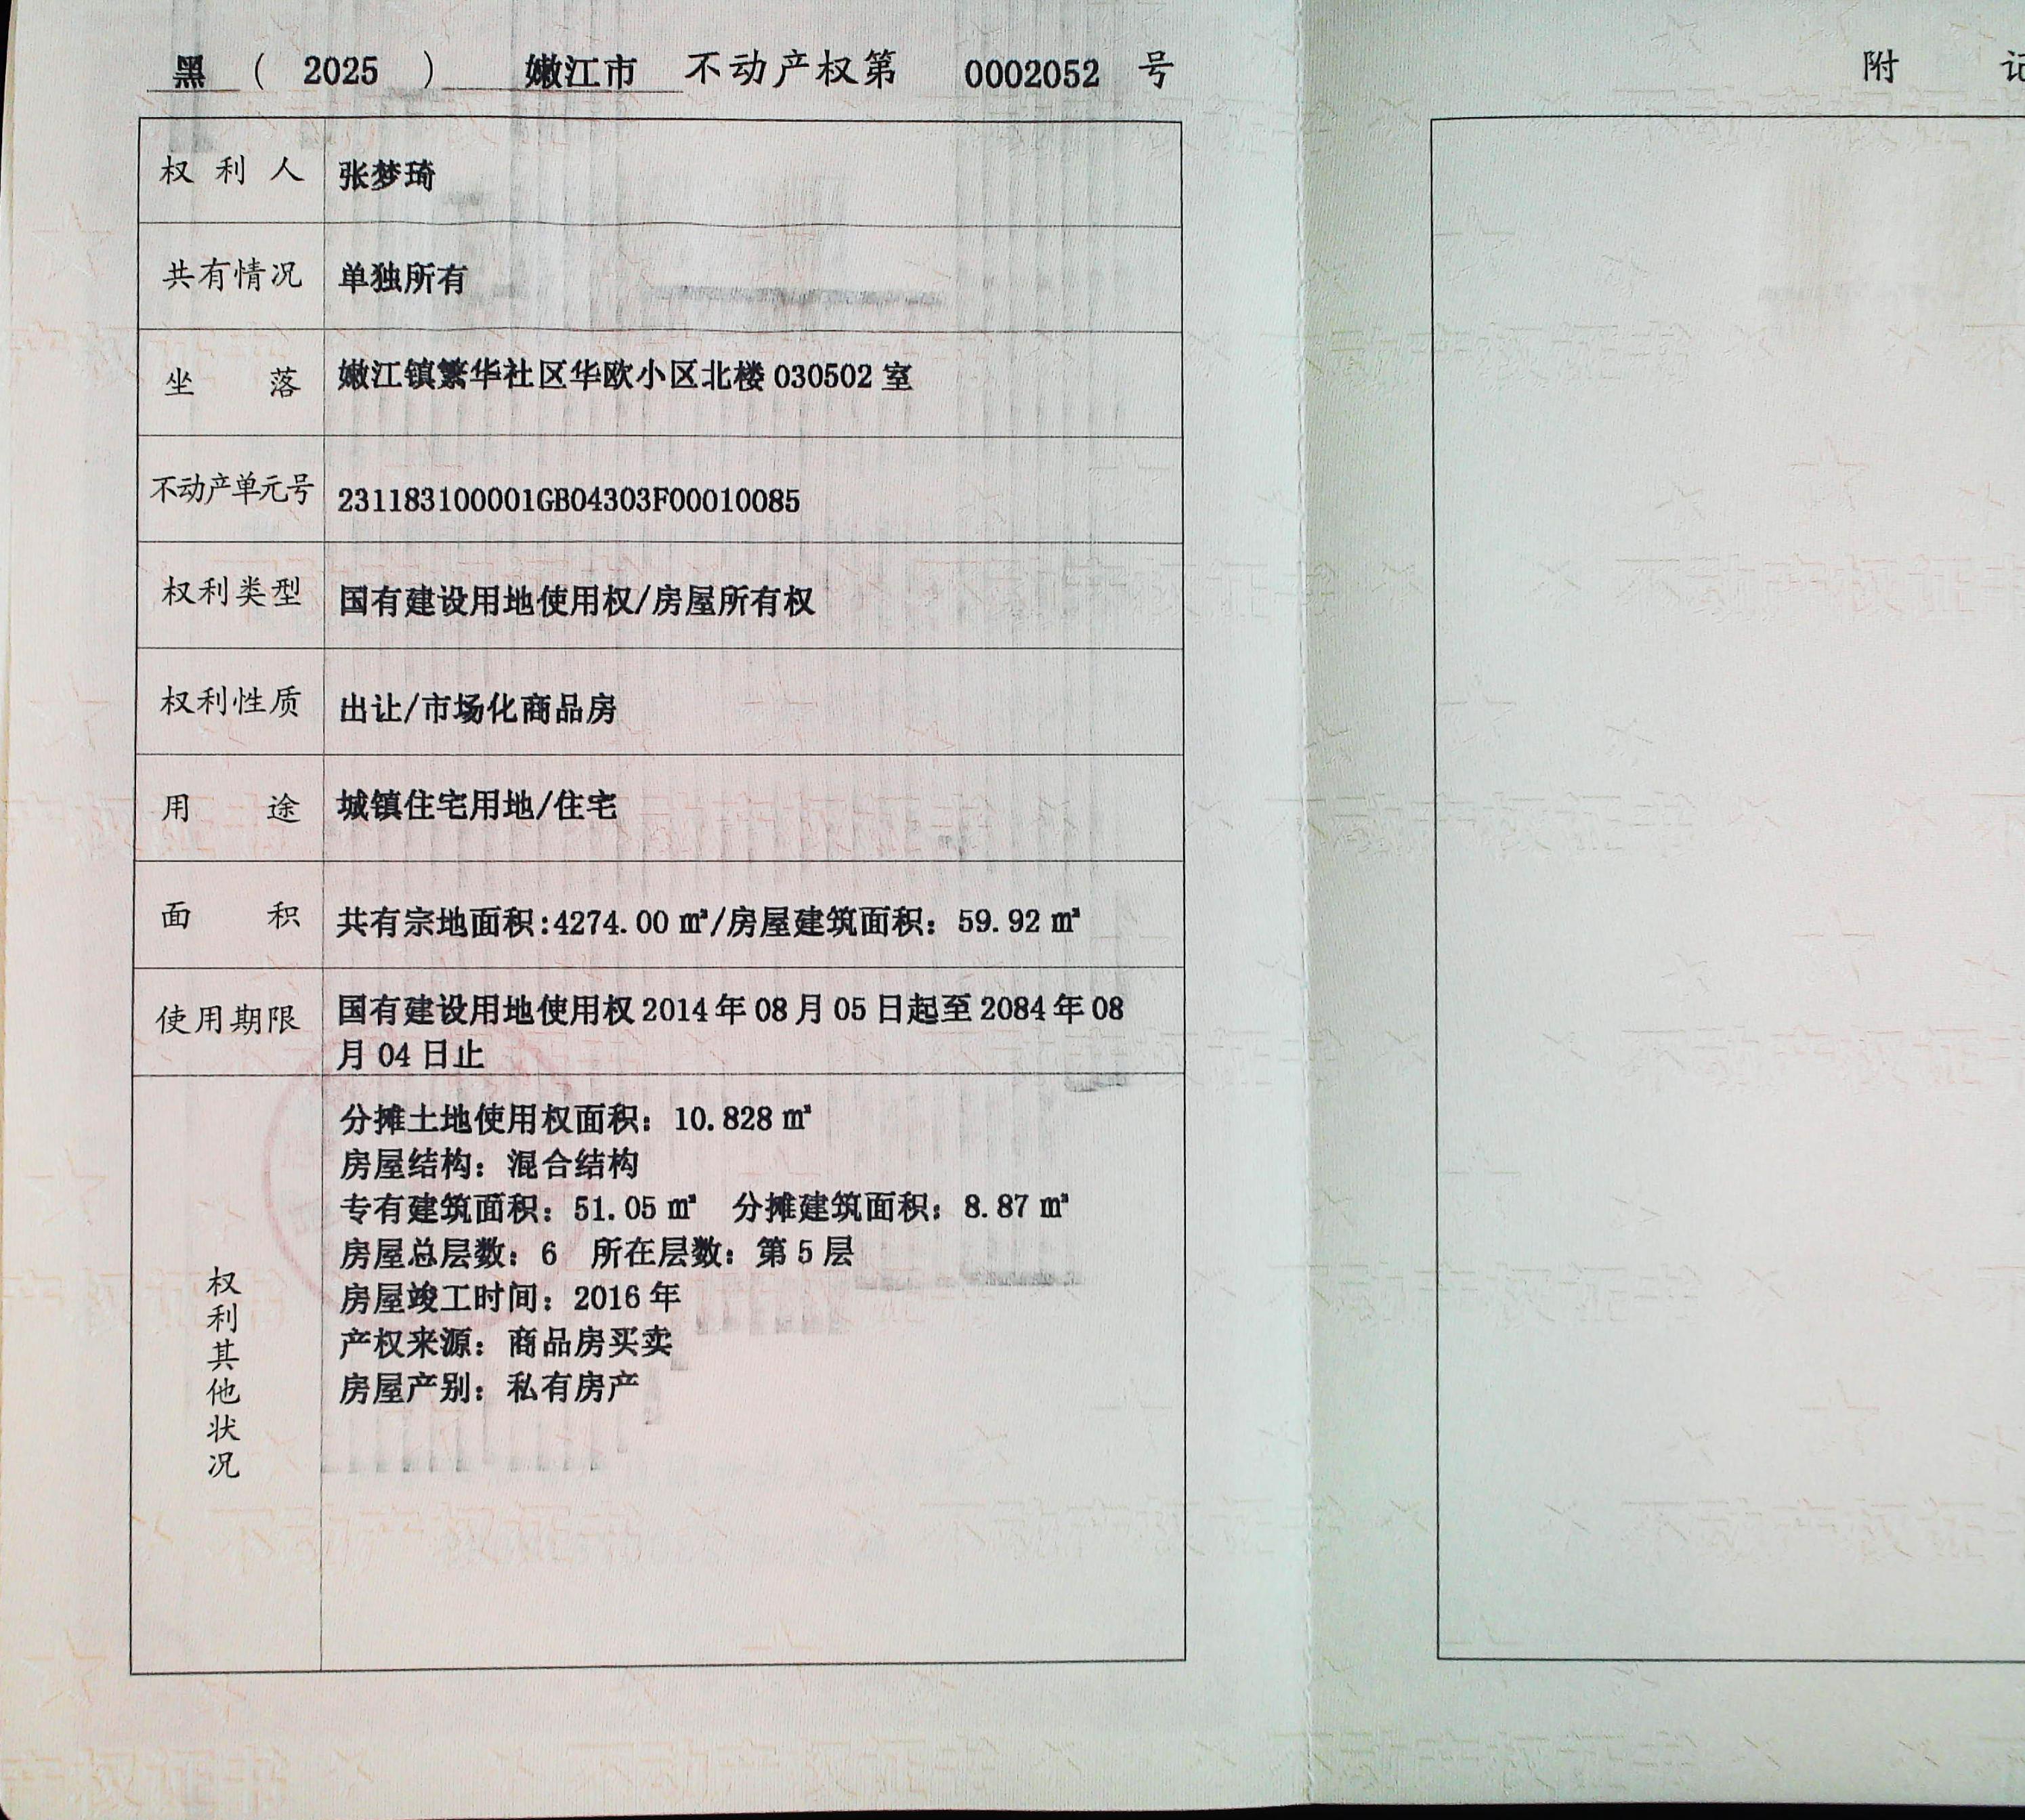 黑 ( 2025 ) 嫩江市 不动产权第 0002052 号
权利人 张梦琦
共有情况 单独所有
坐落 嫩江镇繁华社区华欧小区北楼 030502 室
不动产单元号 231183100001GB04303F00010085
权利类型 国有建设用地使用权/房屋所有权
权利性质 出让/市场化商品房
用途 城镇住宅用地/住宅
面积 共有宗地面积:4274.00 ㎡/房屋建筑面积：59.92 ㎡
使用期限 国有建设用地使用权 2014 年 08 月 05 日起至 2084 年 08
月 04 日止
权利其他状况
分摊土地使用权面积：10.828 ㎡
房屋结构：混合结构
专有建筑面积：51.05 ㎡ 分摊建筑面积：8.87 ㎡
房屋总层数：6 所在层数：第 5 层
房屋竣工时间：2016 年
产权来源：商品房买卖
房屋产别：私有房产
附 记